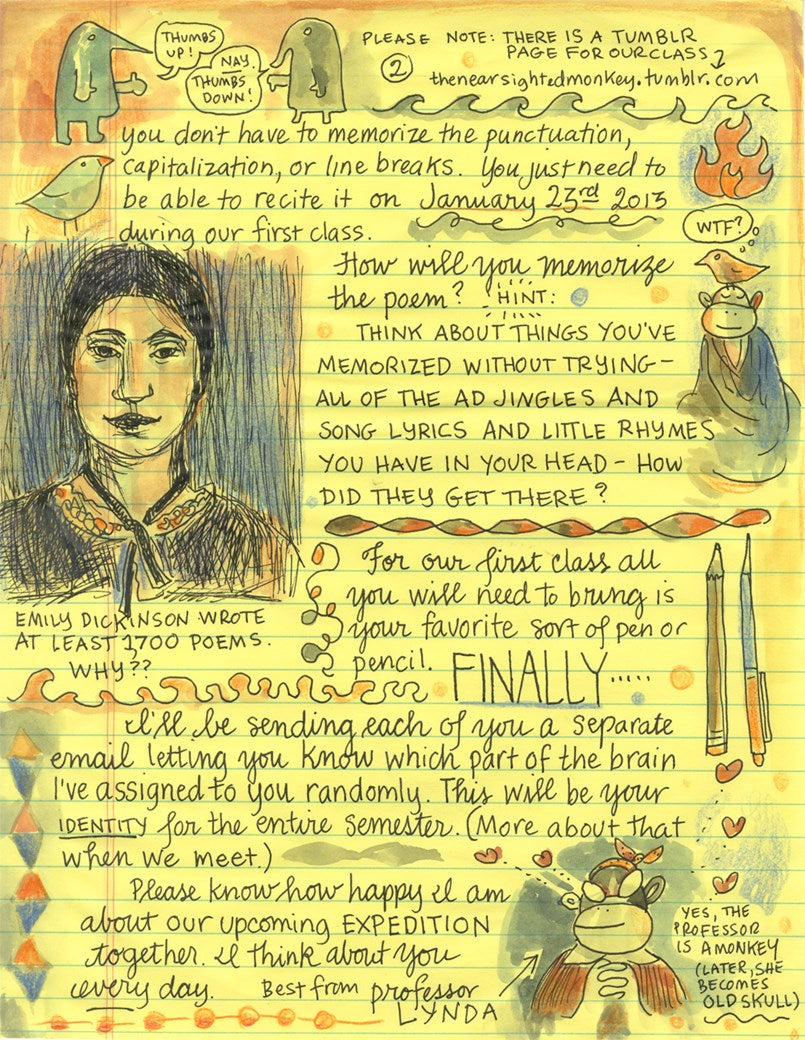 THUMBS
UP!
NAY.
THUMBS
DOWN!
PLEASE NOTE: THERE IS A TUMBLR
PAGE FOR OUR CLASS
2
thenearsightedmonkey.tumblr.com
you don't have to memorize the punctuation,
capitalization, or line breaks. You just need to
be able to recite it on January 23rd 2013
during our first class.
WTF?
How will you memorize
the poem? HINT:
THINK ABOUT THINGS YOU'VE
MEMORIZED WITHOUT TRYING—
ALL OF THE AD JINGLES AND
SONG LYRICS AND LITTLE RHYMES
YOU HAVE IN YOUR HEAD - HOW
DID THEY GET THERE?
EMILY DICKINSON WROTE
AT LEAST 1700 POEMS.
WHY??
For our first class all
you will need to bring is
your favorite sort of pen or
pencil. FINALLY.....
I'll be sending each of you a separate
email letting you know which part of the brain
I've assigned to you randomly. This will be your
IDENTITY for the entire semester. (More about that
when we meet.)
Please know how happy I am
about our upcoming EXPEDITION
together. I think about you
every day. Best from professor
LYNDA
YES, THE
PROFESSOR
IS A MONKEY
(LATER, SHE
BECOMES
OLD SKULL)